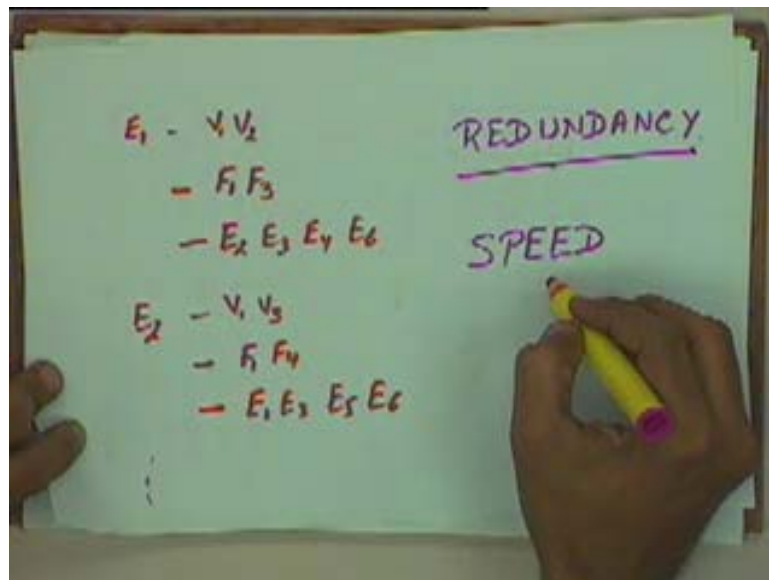 E₁ - V₁ V₂
- F₁ F₃
- E₂ E₃ E₄ E₆
E₂ - V₁ V₃
- F₁ F₄
- E₁ E₃ E₅ E₆
REDUNDANCY
SPEED